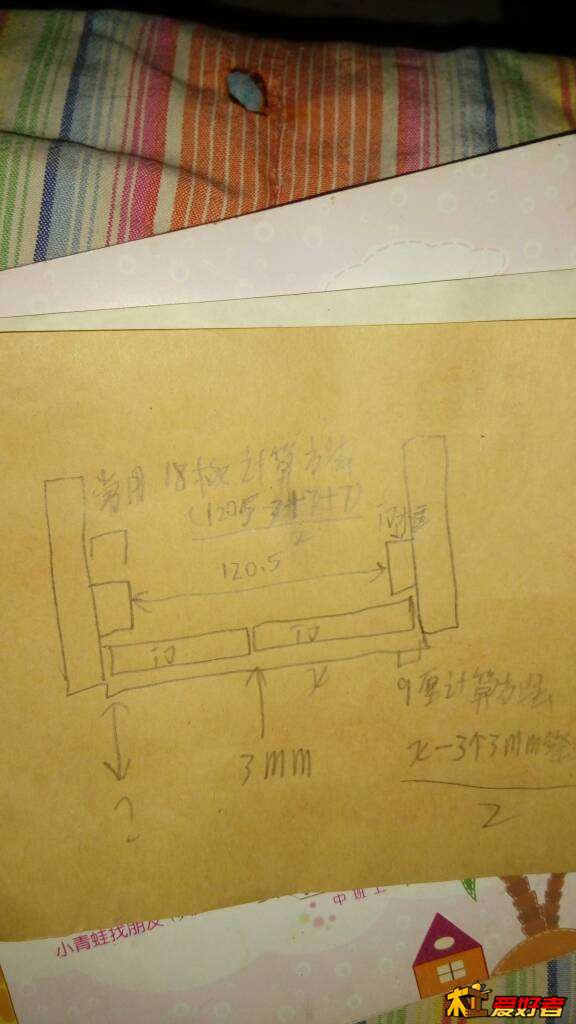 常用 18板计算方法
(120.5-3+7+7)
2
门框
120.5
门
门
x
3mm
?
9厘计算方法
x-3个3mm缝
2
小青蛙找朋友
中班上
杠上爱好者